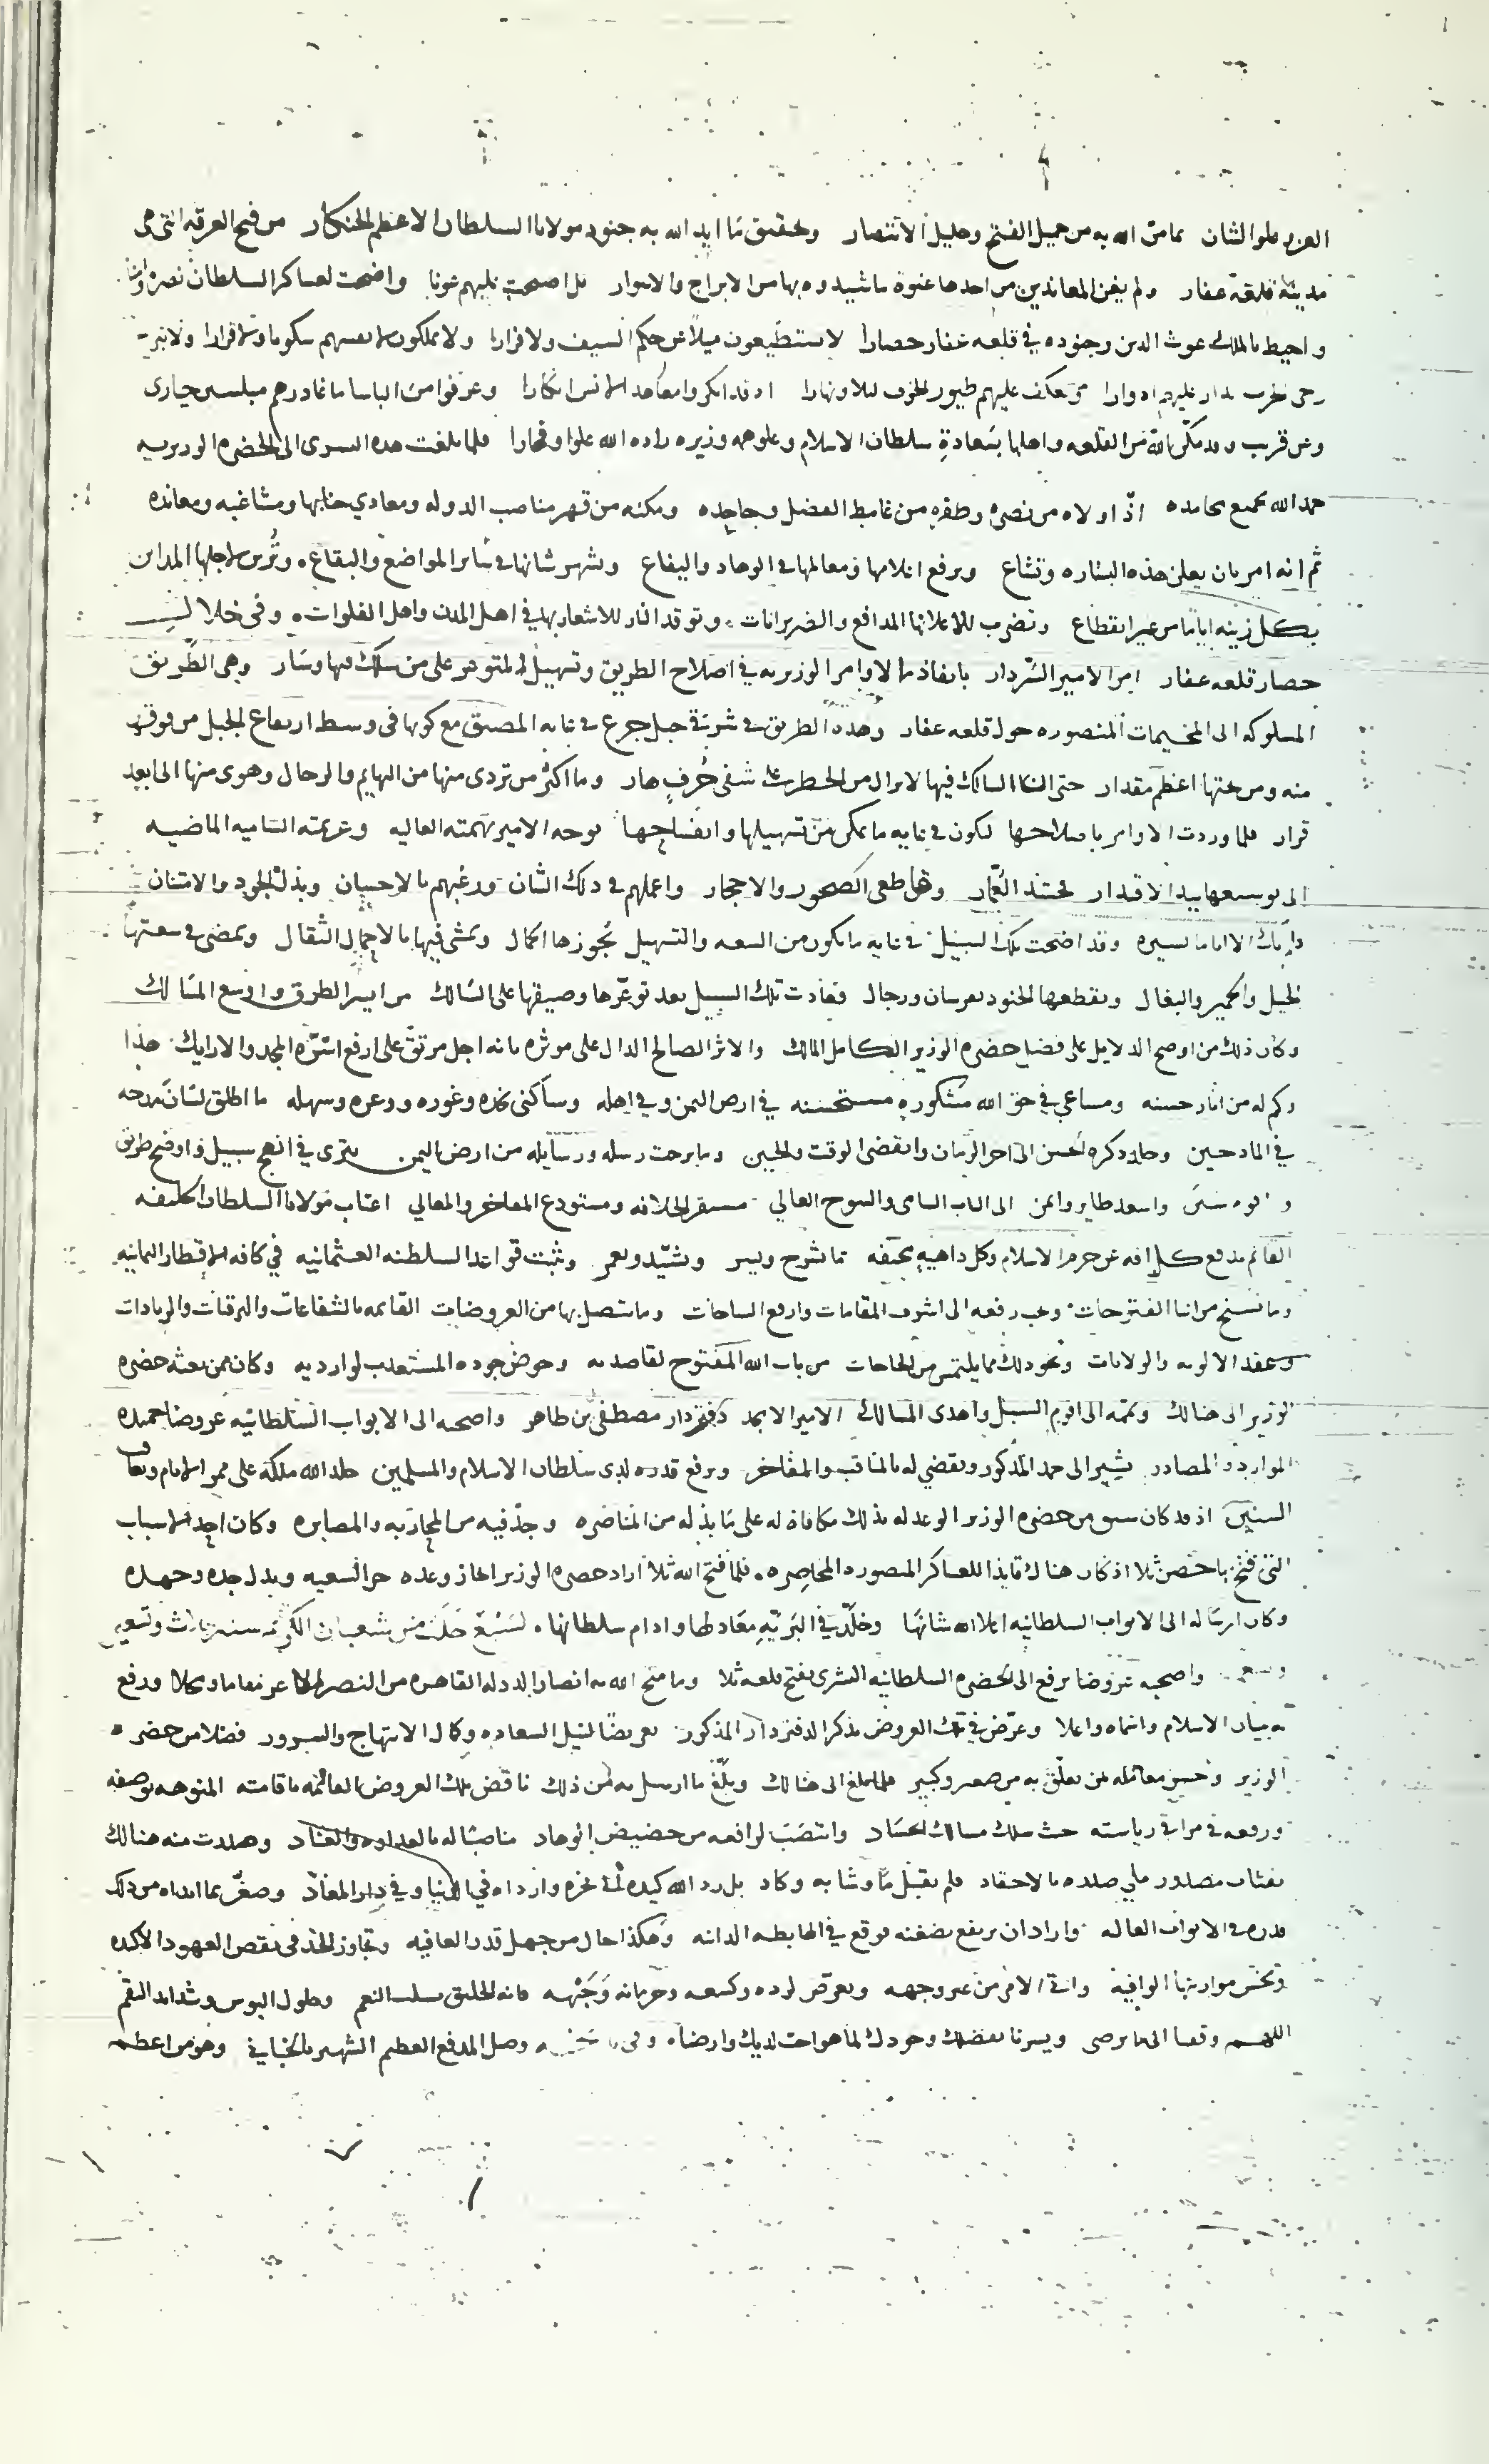 العزيز علو الشان بما من الله به من جميل الفتح وجليل الانتصار وتحقيق ما ايد الله به جنود مولانا السلطان الاعظم الخنكار من فتح العرقه التي هي
مدينة قلعة عفار ولم يغن المعاندين من اخذها عنوة ما شيدوه بها من الابراج والاسوار بل اصبحت عليهم عونا واضحت لعساكر السلطان نصره
واحيط بالملك غوث الدين وجنوده في قلعه عفار حصارا لا يستطيعون ميلا عن حكم السيف ولا فرارا ولا يملكون لانفسهم سكونا ولا قرارا
رحى الحرب تدار عليهم ادوارا وتعكف عليهم طيور الخوف ليلا ونهارا اذ قد انكروا معاهد الانس انكارا وعرفوا من الباسا ما غادرهم مبلسين حيارى
وعن قريب وقد مكن الله من القلعه واهلها بسعادة سلطان الاسلام وعلو همه وزيره زاده الله علوا وفخارا فلما بلغت هذه البشرى الى الحضره الوزيريه
حمد الله بجميع محامده اذ اولاه من نصره وظفره من غامط الفضل وجاحده ومكنه من قهر مناصب الدوله ومعادي جنابها ومشاغبه ومعانده
ثم انه امر بان يعلن هذه البشاره وتشاع ويرفع اعلامها ومعالمها في الوهاد واليفاع وتشهر شانها في سائر المواضع والبقاع وتزين لاجلها المداين
بكل زينه اياما من غير انقطاع وتضرب للاعلان المدافع والضربزانات وتوقد النار للاشعار بها في اهل المدن واهل الفلوات وفي خلال
حصار قلعه عفار امر الامير السردار بانفاذ الاوامر الوزيريه في اصلاح الطريق وتسهيل المتوعر على من سلك فيها وسار وهي الطريق
المسلوكه الى المخيمات المنصوره حول قلعه عفار وهذه الطريق في شرقي جبل جرع في غايه المضيق مع كونها في وسط ارتفاع الجبل من فوق
منه ومن تحتها اعظم مقدار حتى السالك فيها لا يزال من الخطر على شفى جرف هار وما اكثر من تردى منها من البهايم والرجال وهوى منها الى ابعد
قرار فلما وردت الاوامر باصلاحها لتكون في غايه ما يمكن من تسهيلها وانفساحها توجه الامير بهمته العاليه وعزيمته الساميه الماضيه
الى توسيعها بيد الاقتدار فحشد العمار وقاطعي الصخور والاحجار واعملهم في ذلك الشان ورغبهم بالاحسان وبذل الجود والامتنان
الا اياما يسيره وقد اضحت تلك السبيل في غايه ما يكون من السعه والتسهيل تجوزها الجمال وتمشي فيها بالاحمال الثقال وتمضي في سعتها
الخيل والحمير والبغال ويقطعها الجنود بفرسان ورجال فعادت تلك السبيل بعد توعرها وضيقها على السالك من ايسر الطرق واوسع المسالك
وكان ذلك من اوضح الدلايل على فضل حضره الوزير الكامل المالك والاثر الصالح الدال على موثره بانه اجل مرتق على ارفع اسره المجد والارايك هذا
وكم له من اثار حسنه ومساعي في حق الله مشكوره مستحسنه في ارض اليمن وفي اهله وساكني نجده وغوره ووعره وسهله ما اطلق لسان مدحه
في المادحين وخلد ذكره الحسن الى اخر الزمان وانقضى الوقت والحين وما برحت رسله ورسايله من ارض اليمن تترى في انهج سبيل واوضح طريق
واسعد طاير وايمن الى الباب السامي والسوح العالي مستقر الخلافه ومستودع المفاخر والمعالي اعتاب مولانا السلطان الخليفه
القائم بدفع كل افه عن حرم الاسلام وكل داهيه مخيفه بما يشرح ويسر ويشيد ويعمر ويثبت قواعد السلطنه العثمانيه في كافه الاقطار اليمانيه
وما يسنح من انباء الفتوحات وجب رفعه الى اشرف المقامات وارفع الساحات وما يتصل بها من العروضات القائمه بالشفاعات والترقيات والزيادات
وعقد الالويه والولايات ونحو ذلك مما يلتمس من الحاجات من باب الله المفتوح لقاصديه وحوض جوده المستعذب لوارديه وكان ممن بعثه حضره
الوزير الى هنالك ويممه الى اقوم السبل واهدى المسالك الامير الامجد دفتردار مصطفى بن طاهر واصحبه الى الابواب السلطانيه عروضا حميده
الموارد والمصادر تشير الى حمد المذكور وتقضي له بالمناقب والمفاخر وترفع قدره لدى سلطان الاسلام والمسلمين خلد الله ملكه على ممر الايام وتعاقب
السنين اذ قد كان سبق من حضره الوزير الوعد له بذلك مكافاة له على ما بذله من المناصره وجد فيه من المحاربه والمصابره وكان احد الاسباب
التي فتح بها حصن ثلا اذ كان هنالك قايدا للعساكر المنصوره المحاصره فلما فتح الله ثلا اراد حضره الوزير انجاز وعده جزا لسعيه وبذل جده وجهده
وكان ارساله الى الابواب السلطانيه اعلا الله شانها وخلد في البريه معاد لها وادام سلطانها لسبع خلت من شعبان الكريم سنه ثلاث وتسعين
واصحبه عروضا يرفع الى الحضره السلطانيه البشرى بفتح قلعه ثلا وما منح الله به انصار الدوله القاهره من النصر الاعز مقاما ومحلا ورفع
به بنيان الاسلام وانماه واعلا وعرض في تلك العروض بذكر الدفتردار المذكور تعريضا لنيل السعاده وكمال الابتهاج والسرور فضلا من حضره
الوزير وحسن معامله لمن تعلق به من صغير وكبير فلما بلغ الى هنالك وبلغ ما ارسل به من ذلك ناقض تلك العروض العالمه باقامته المنوهه بوصفه
ورفعه في مراقي رياسته حيث سلك مسالك الحساد وانتصب لرافعه من حضيض الوهاد مناصبا له بالعداوه والعناد وصدرت منه هنالك
نفثات مصدور ملي صدره بالاحقاد فلم يقبل ما وشا به وكاد بل رد الله كيده في نحره وارداه في الدنيا وفي دار المعاد وصغر بما ابداه من ذلك
قدره في الابواب العاليه واراد ان يرتفع بضغنه فوقع في الهابطه الدانيه وهكذا حال من جهل قدر العافيه وتجاوز الحد في نقض العهود الاكيده
وبخس موازينها الوافيه واتى الامر من غير وجهه وتعرض لرده وكسعه وحرمانه وجبهه فانه لخليق بسلب النعم وطول البوس وشدايد النقم
اللهم وفقنا الى ما يرضى ويسرنا بفضلك وجودك لما هو احب لديك وارضاه وصل المدفع العظيم الشهير بالخباني وهو من اعظم